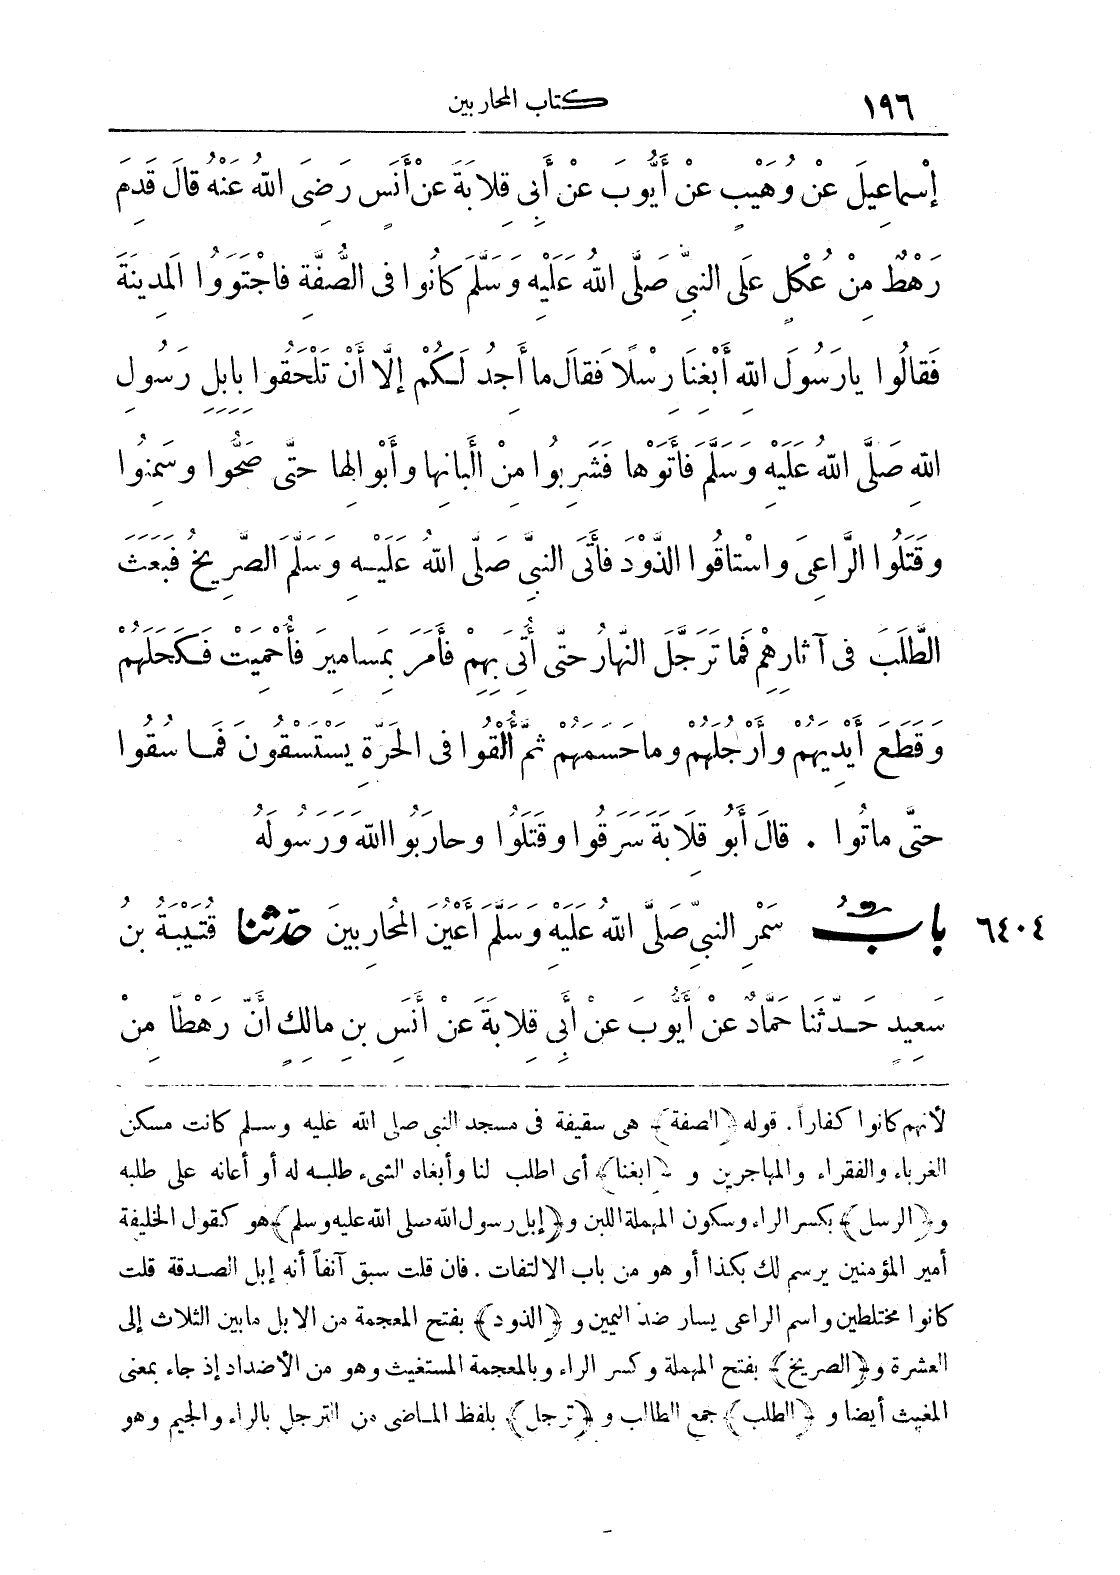 ١٩٦ كتاب المحاربين
إِسْماعِيلَ عَنْ وُهَيْبٍ عَنْ أَيُّوبَ عَنْ أَبِى قِلابَةَ عَنْ أَنَسٍ رَضِىَ اللهُ عَنْهُ قالَ قَدِمَ
رَهْطٌ مِنْ عُكْلٍ عَلَى النبىِّ صَلَّى اللهُ عَلَيْهِ وَسَلَّمَ كانُوا فى الصُّفَّةِ فاجْتَوَوُا المَدِينَةَ
فَقالُوا يارَسُولَ اللهِ أَبْغِنَا رِسْلًا فَقالَ ما أَجِدُ لَكُمْ إلَّا أَنْ تَلْحَقُوا بِإبِلِ رَسُولِ
اللهِ صَلَّى اللهُ عَلَيْهِ وَسَلَّمَ فَأَتَوْها فَشَرِبُوا مِنْ أَلْبانِها وأَبْوالِها حتَّى صَحُّوا وسَمِنُوا
وقَتَلُوا الرَّاعِىَ واسْتاقُوا الذَّوْدَ فأَتَى النبىَّ صَلَّى اللهُ عَلَيْهِ وَسَلَّمَ الصَّرِيخُ فَبَعَثَ
الطَّلَبَ فى آثارِهِمْ فَما تَرَجَّلَ النَّهارُ حتَّى أُتِىَ بِهِمْ فَأَمَرَ بِمَسامِيرَ فَأُحْمِيَتْ فَكَحَلَهُمْ
وَقَطَعَ أَيْدِيَهُمْ وأَرْجُلَهُمْ وما حَسَمَهُمْ ثُمَّ أُلْقُوا فى الحَرَّةِ يَسْتَسْقُونَ فَما سُقُوا
حتَّى ماتُوا . قالَ أَبُو قِلَابَةَ سَرَقُوا وقَتَلُوا وحارَبُوا اللهَ وَرَسُولَهُ
٦٤٠٤ بابُ سَمْرِ النبىِّ صَلَّى اللهُ عَلَيْهِ وَسَلَّمَ أَعْيُنَ المُحارِبِينَ حدّثنا قُتَيْبَةُ بنُ
سَعِيدٍ حَدَّثَنا حَمَّادٌ عَنْ أَيُّوبَ عَنْ أَبِى قِلابَةَ عَنْ أَنَسِ بنِ مالِكٍ أَنَّ رَهْطًا مِنْ
لأنهم كانوا كفاراً. قوله ﴿الصفة﴾ هى سقيفة فى مسجد النبى صلى الله عليه وسلم كانت مسكن
الغرباء والفقراء والمهاجرين و ﴿ابغنا﴾ أى اطلب لنا وأبغاه الشىء طلبه له أو أعانه على طلبه
و﴿الرسل﴾ بكسر الراء وسكون المهملة اللبن و﴿إبل رسول الله صلى الله عليه وسلم﴾ هو كقول الخليفة
أمير المؤمنين يرسم لك بكذا أو هو من باب الالتفات . فان قلت سبق آنفاً أنه إبل الصدقة قلت
كانوا مختلطين واسم الراعى يسار ضد اليمين و ﴿الذود﴾ بفتح المعجمة من الابل مابين الثلاث إلى
العشرة و﴿الصريخ﴾ بفتح المهملة وكسر الراء وبالمعجمة المستغيث وهو من الأضداد إذ جاء بمعنى
المغيث أيضا و ﴿الطلب﴾ جمع الطالب و ﴿ترجل﴾ بلفظ الماضى من الترجل بالراء والجيم وهو